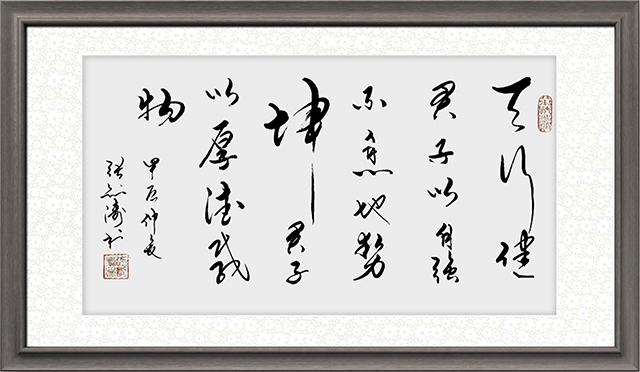 天行健
君子以自强
不息地势
坤君子
以厚德载
物
甲辰仲夏